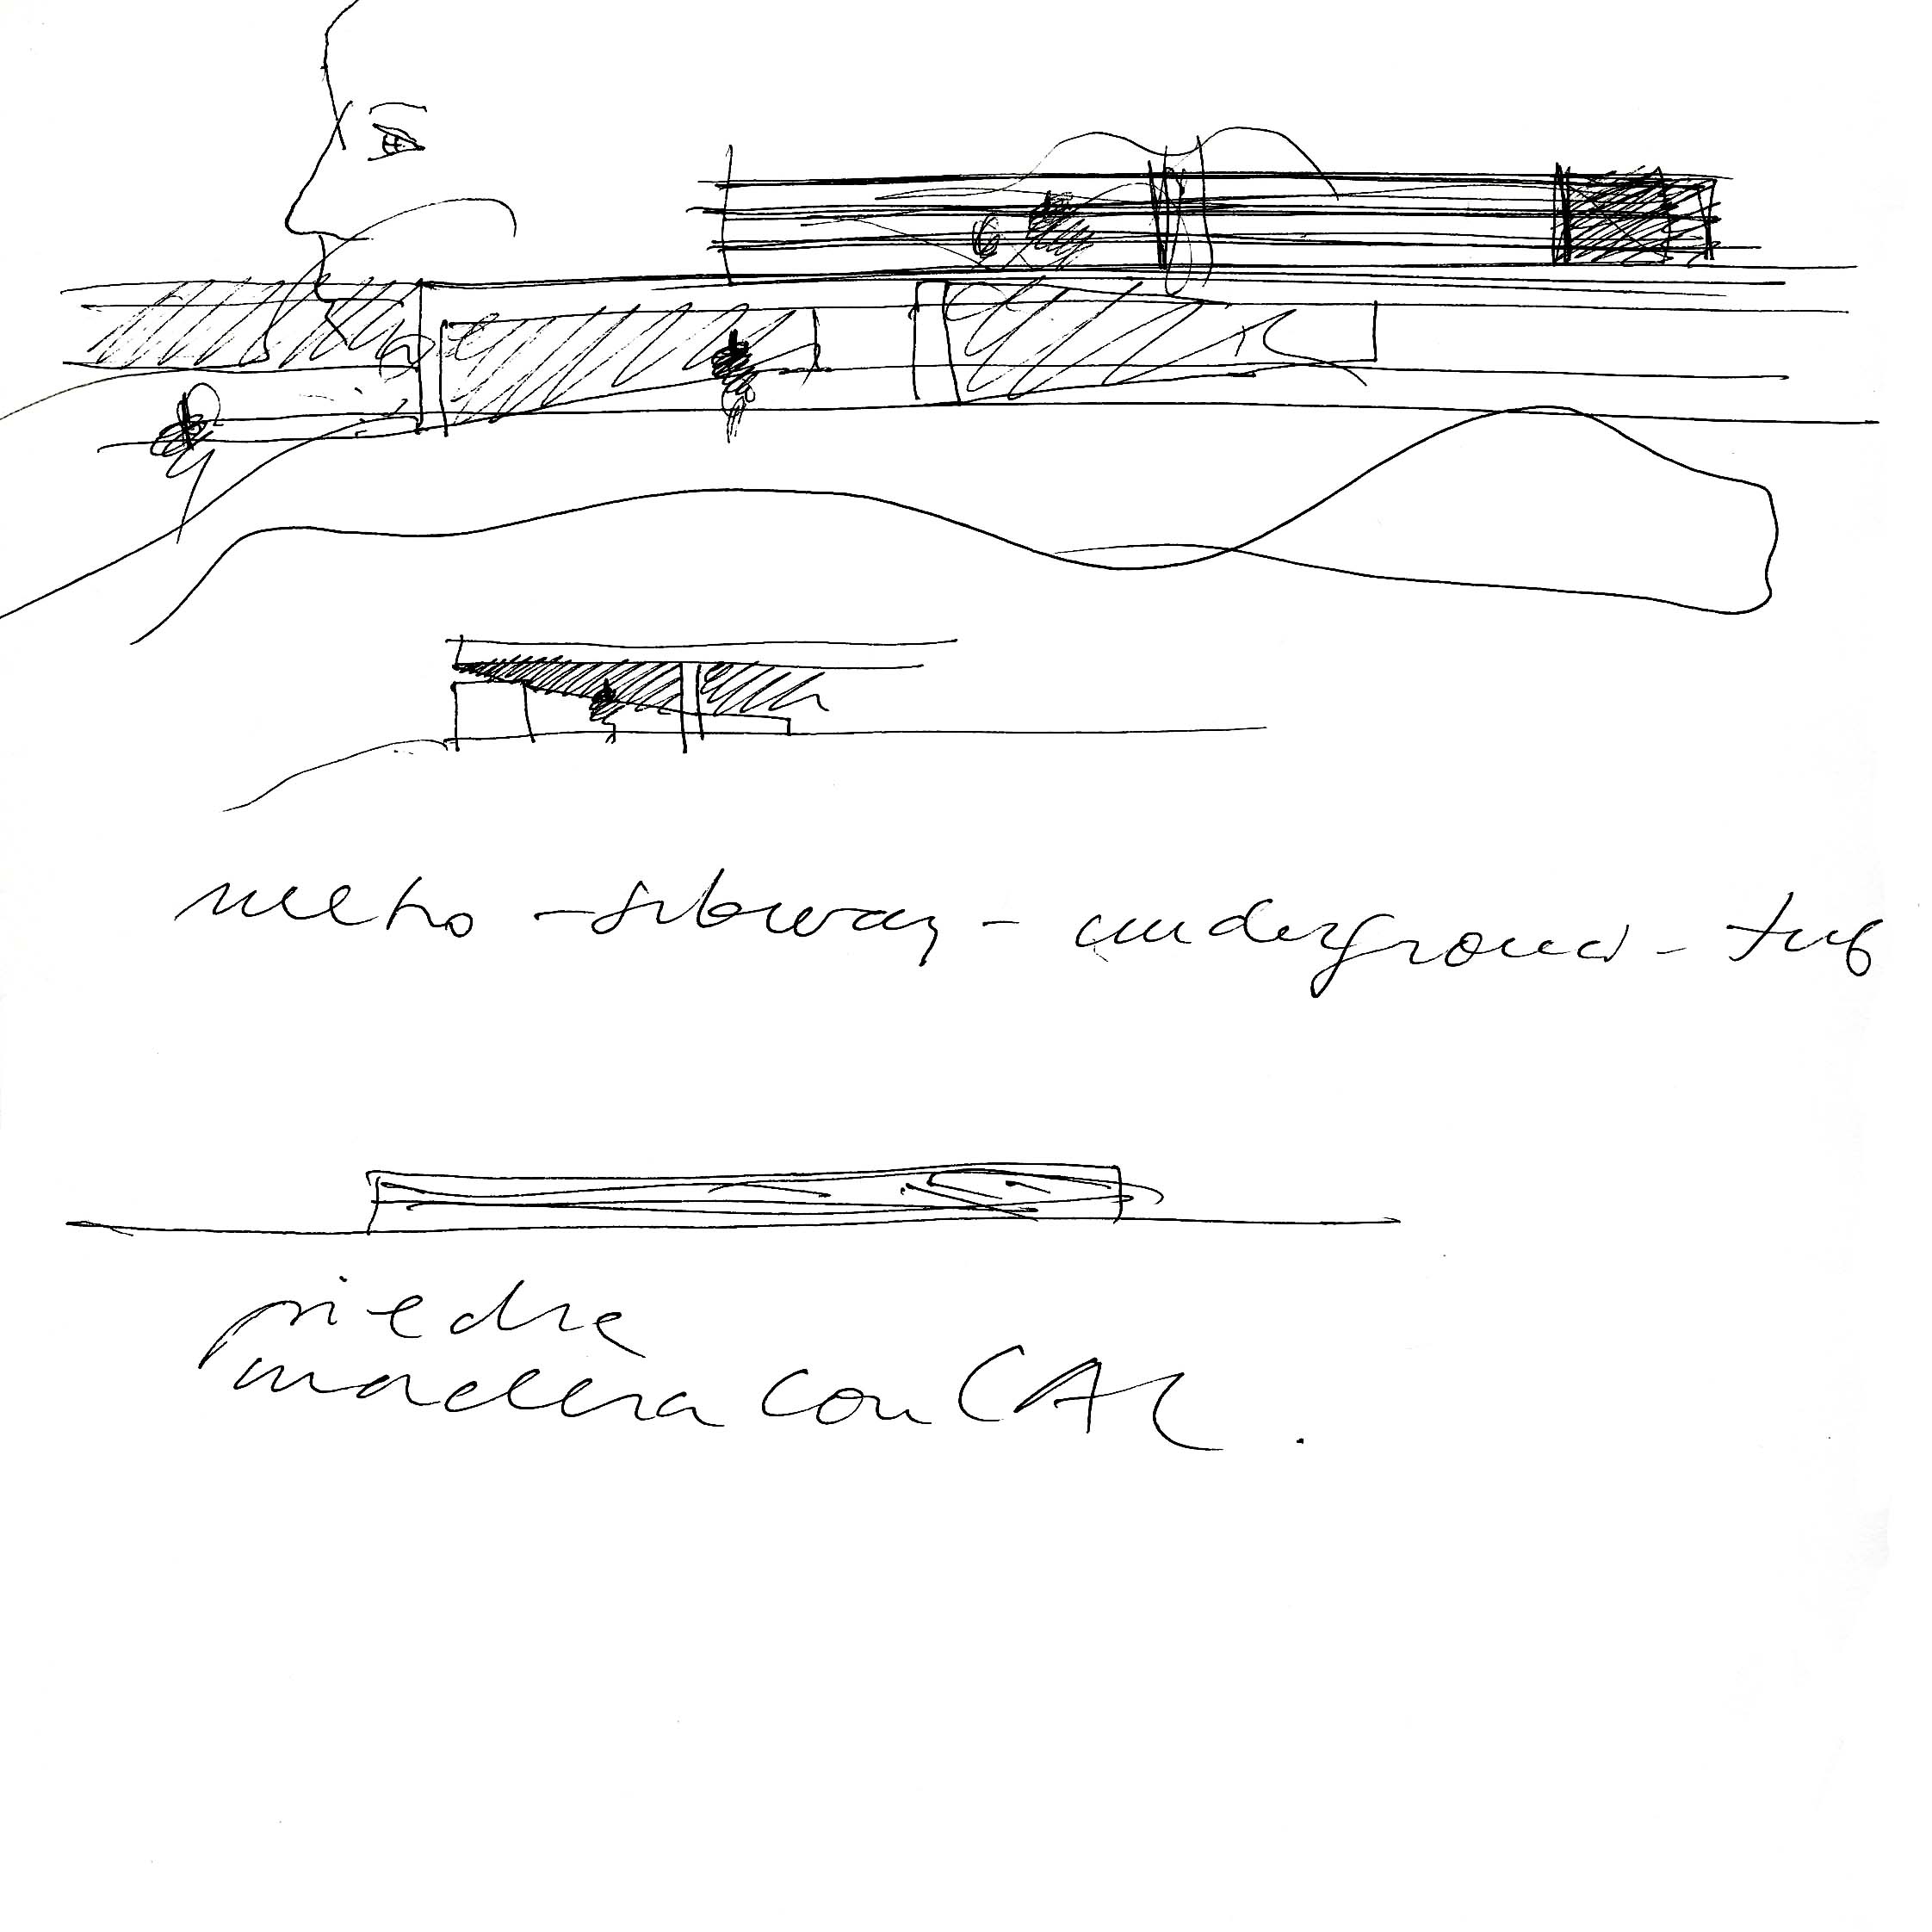 metro - subway - underground - tub
piedra
madera con CAL.